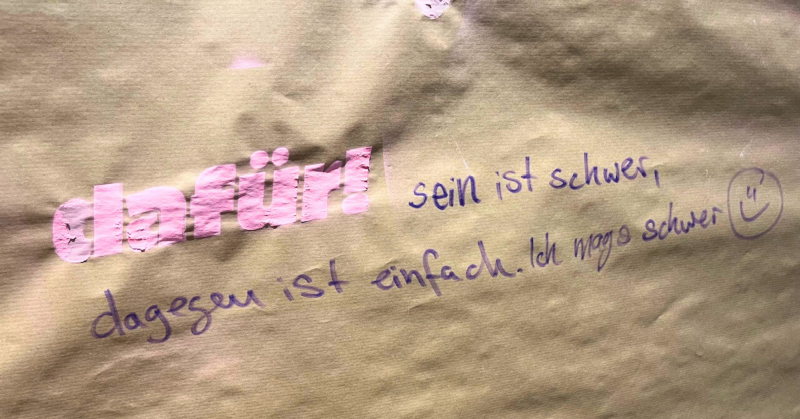 dafür! sein ist schwer,
dagegen ist einfach. Ich mags schwer